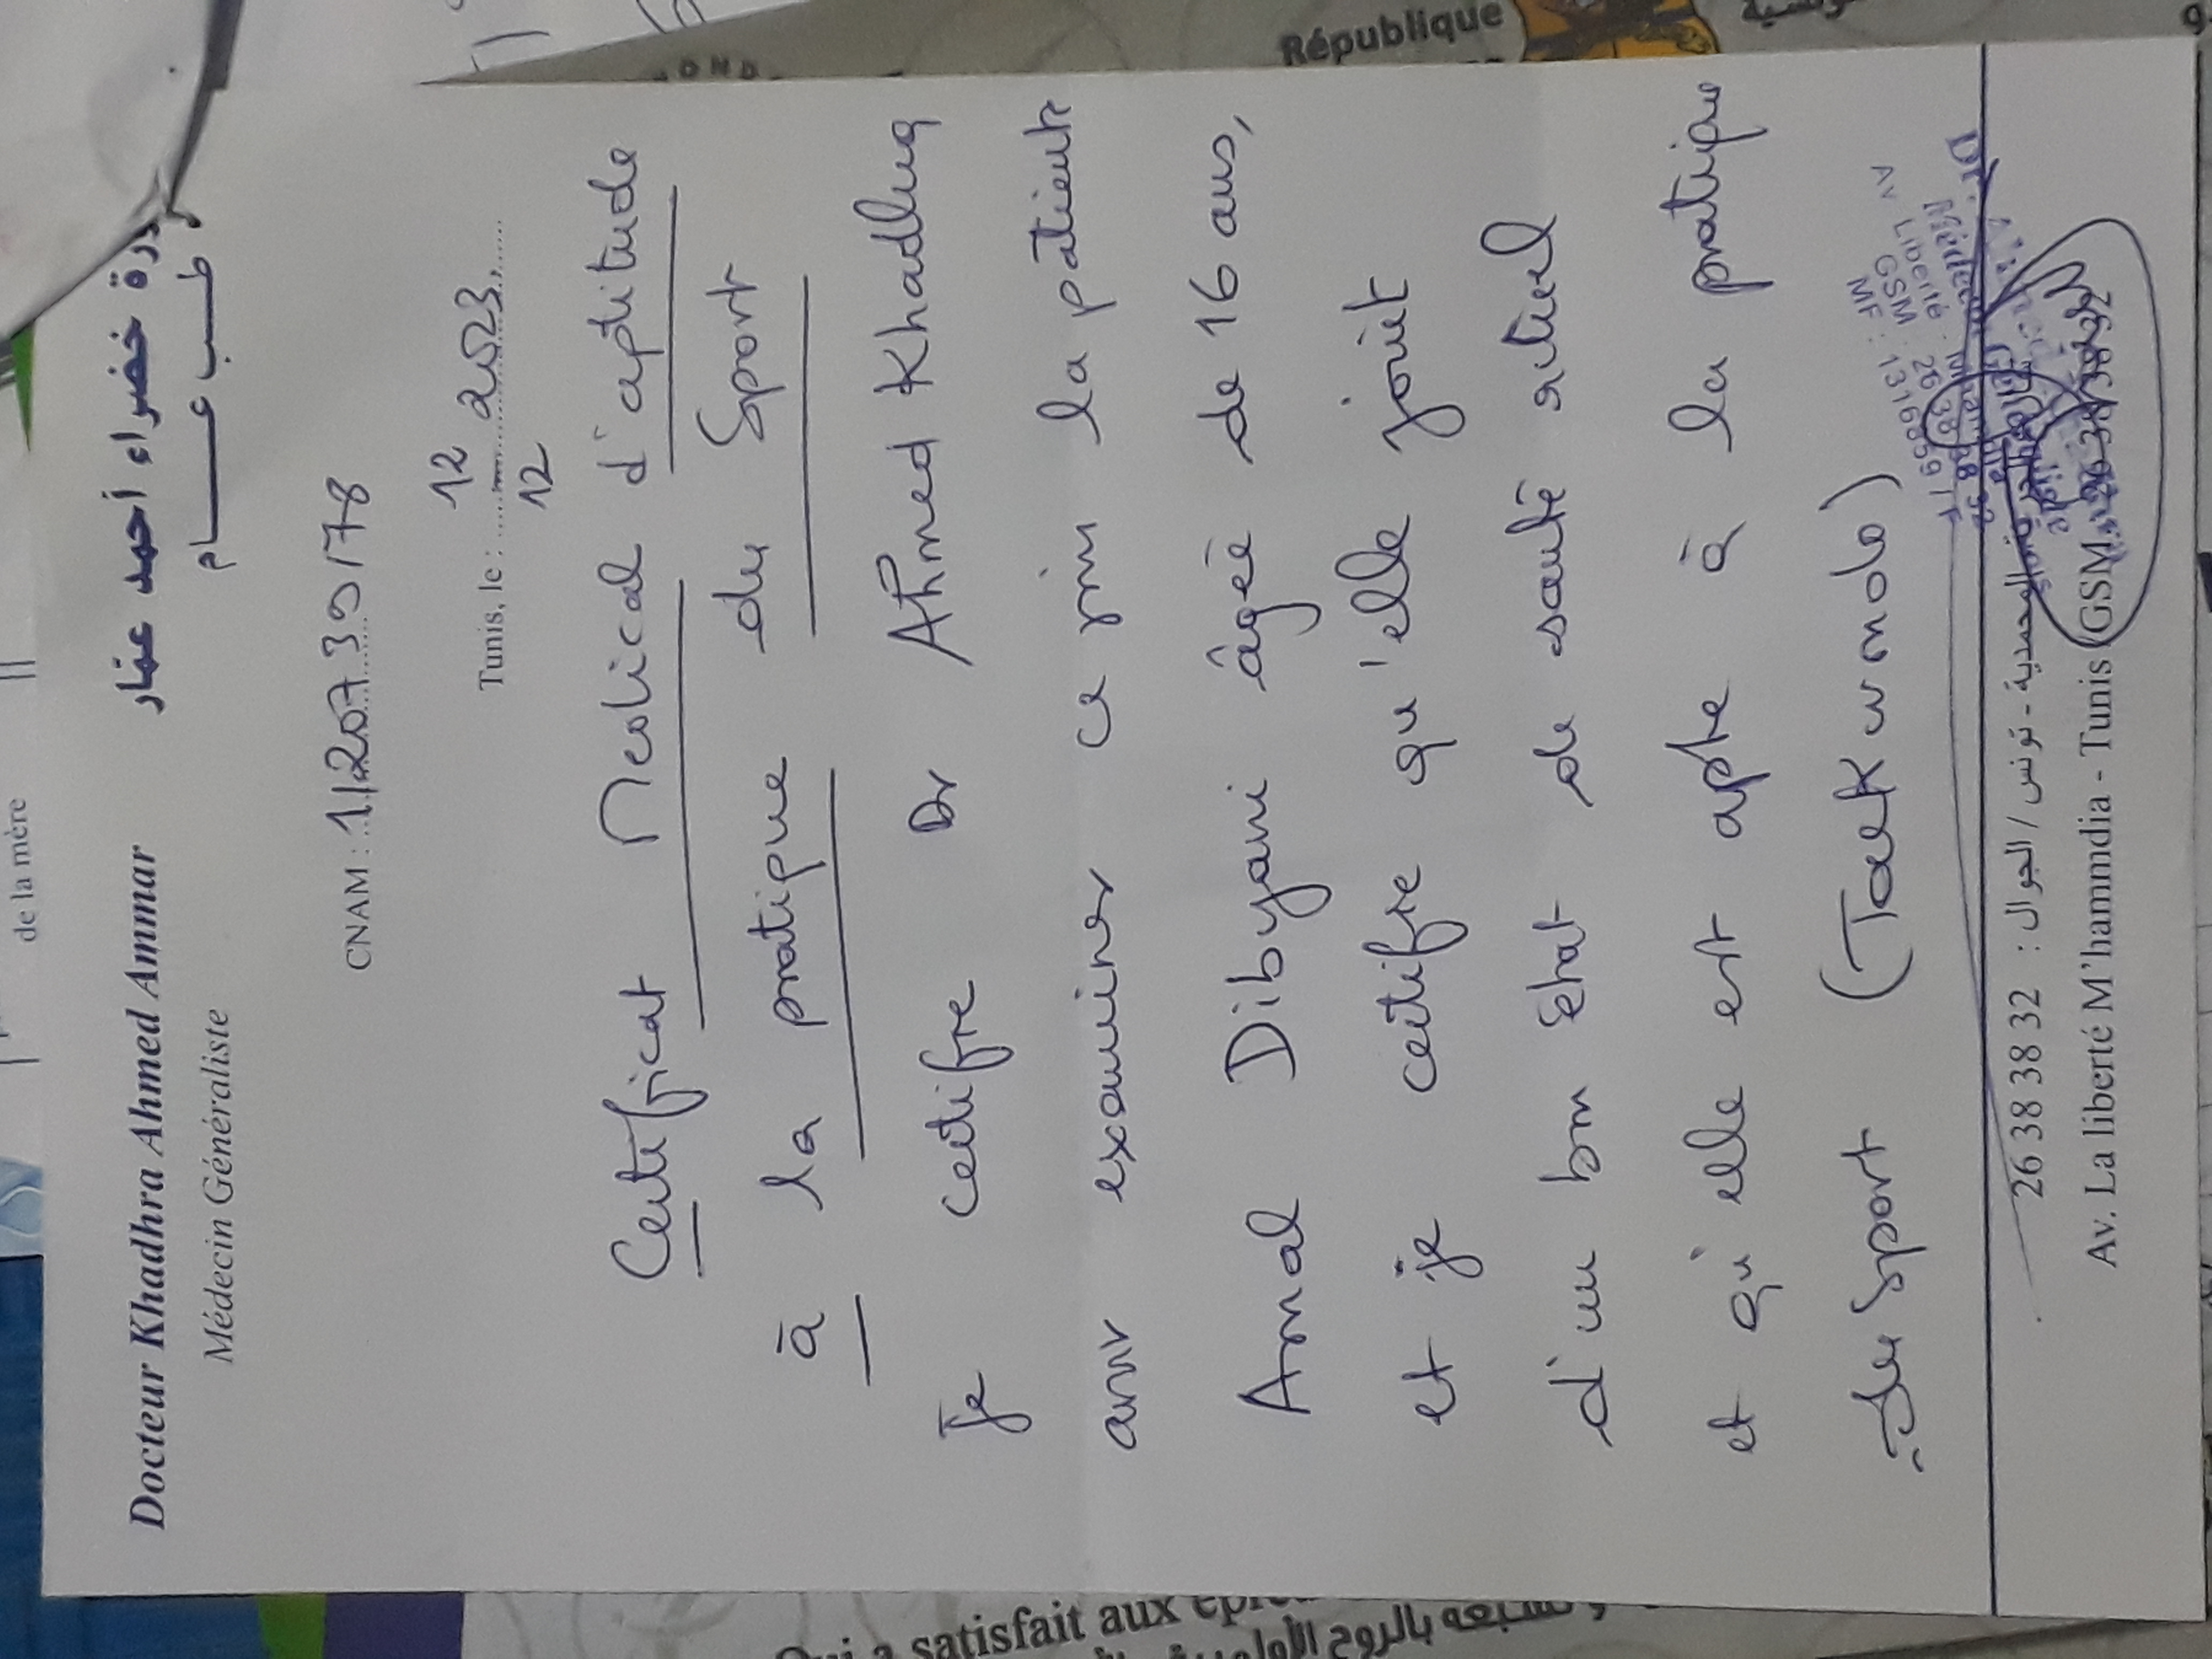 Docteur Khadhra Ahmed Ammar
خضراء أحمد عمّار
Médecin Généraliste
طــب عــــام
CNAM : 1/20739/78
Tunis, le : 12 12 2023
Certificat Medical d'aptitude
à la pratique du Sport
Je certifie Dr Ahmed Khadhra
avoir examiner ce jour la patiente
Amal Dibyani âgée de 16 ans,
et je certifie qu'elle jouit
d'un bon état de santé actuel
et qu'elle est apte à la pratique
du Sport (Taekwndo)
Av Liberté
GSM : 26 38 38 32
26 38 38 32 : المحمدية - تونس / الجوال
Av. La liberté M'hamndia - Tunis GSM
de la mère
République
satisfait aux